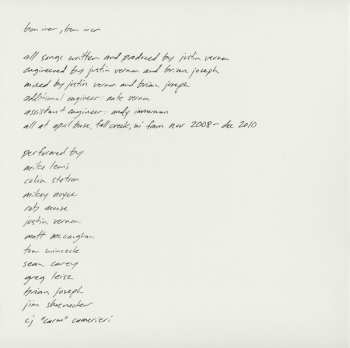 bon iver, bon iver
all songs written and produced by justin vernon
engineered by justin vernon and brian joseph
mixed by justin vernon and brian joseph
additional engineer: nate vernon
assistant engineer: andy immerman
all at april base, fall creek, wi from nov 2008 - dec 2010
performed by
mike lewis
colin stetson
mikey noyce
rob moose
justin vernon
matt mccaughan
tom wincek
sean carey
greg leisz
brian joseph
jim schoenecker
cj "carm" camerieri